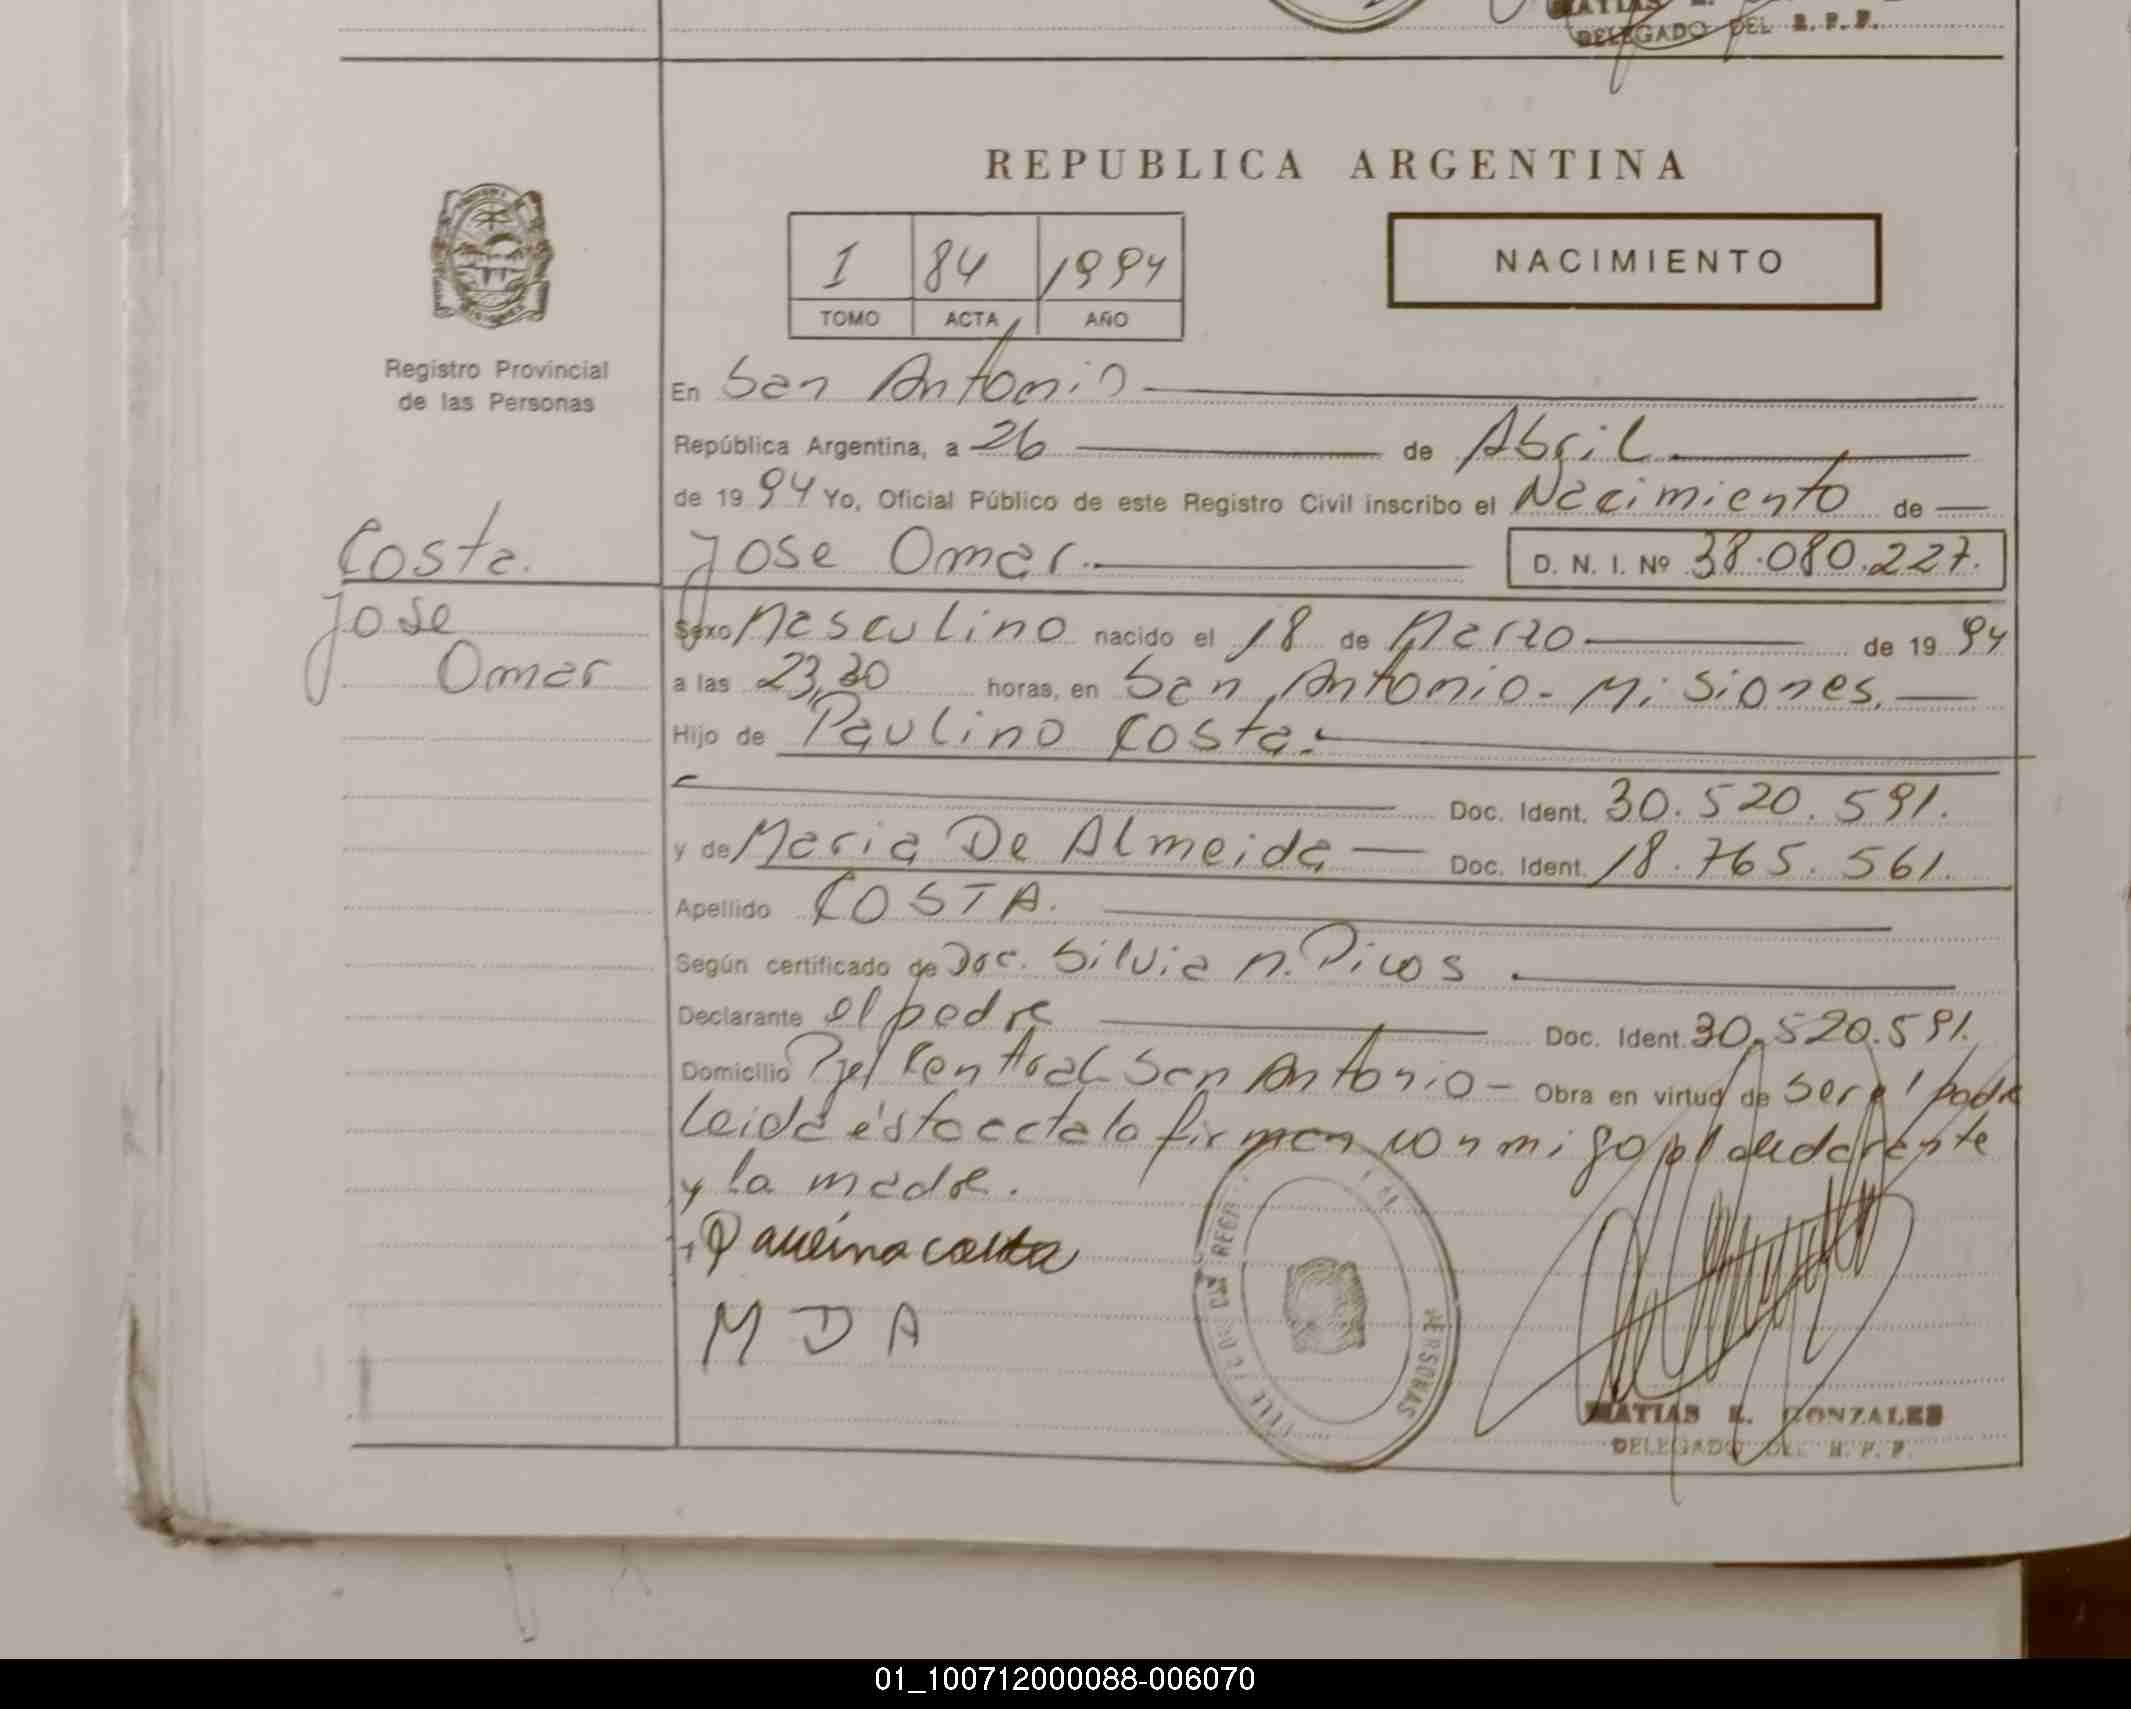 DELEGADO DEL R. P. P.
REPUBLICA ARGENTINA
I 84 1994
TOMO ACTA AÑO
NACIMIENTO
Registro Provincial
de las Personas
En San Antonio
República Argentina, a 26 de Abril
de 1994 Yo, Oficial Público de este Registro Civil inscribo el Nacimiento de
Costa.
Jose Omar. D. N. I. Nº 38.080.227.
Jose
Omar
Sexo Masculino nacido el 18 de Marzo de 1994
a las 23,30 horas, en San Antonio - Misiones.
Hijo de Paulino Costa.
Doc. Ident. 30.520.591.
y de Maria De Almeida Doc. Ident. 18.765.561.
Apellido COSTA.
Según certificado de Doc. Silvia n.
Declarante el padre Doc. Ident. 30.520.591.
Domicilio Central San Antonio - Obra en virtud de ser el padre
Leida ésta acta la firman conmigo el declarante
y la madre.
Paulino Costa
M D A
PERSONAS
MATIAS E. GONZALES
DELEGADO DEL R. P. P.
01_100712000088-006070